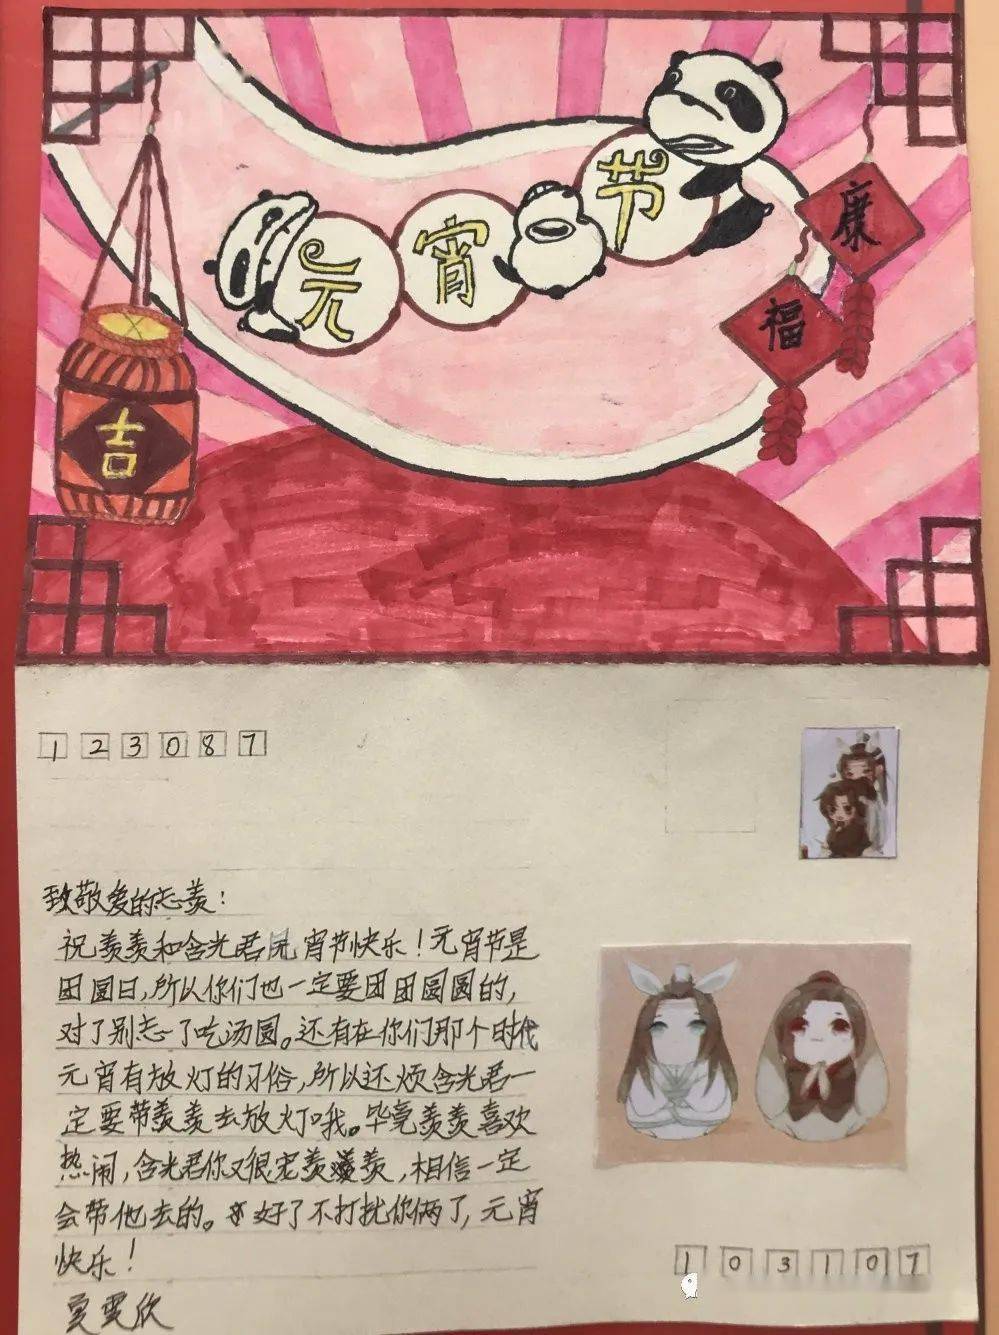 元宵节
康
福
吉
123087
致敬爱的忘羡：
祝羡羡和含光君元宵节快乐！元宵节是
团圆日，所以你们也一定要团团圆圆的，
对了别忘了吃汤圆。还有在你们那个时代
元宵有放灯的习俗，所以还烦含光君一
定要带羡羡去放灯哦。毕竟羡羡喜欢
热闹，含光君你又很宠羡羡，相信一定
会带他去的。好了不打扰你俩了，元宵
快乐！
103107